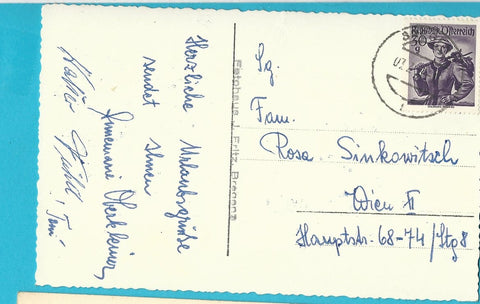 Herzliche Urlaubsgrüße
sendet Ihnen
Annemarie Oberkleiner
Toni
Fotohaus J. Fritz, Bregenz
Republik Österreich
Sg.
Fam.
Rosa Sinkowitsch
Wien II
Hauptstr. 68-74/Stg8